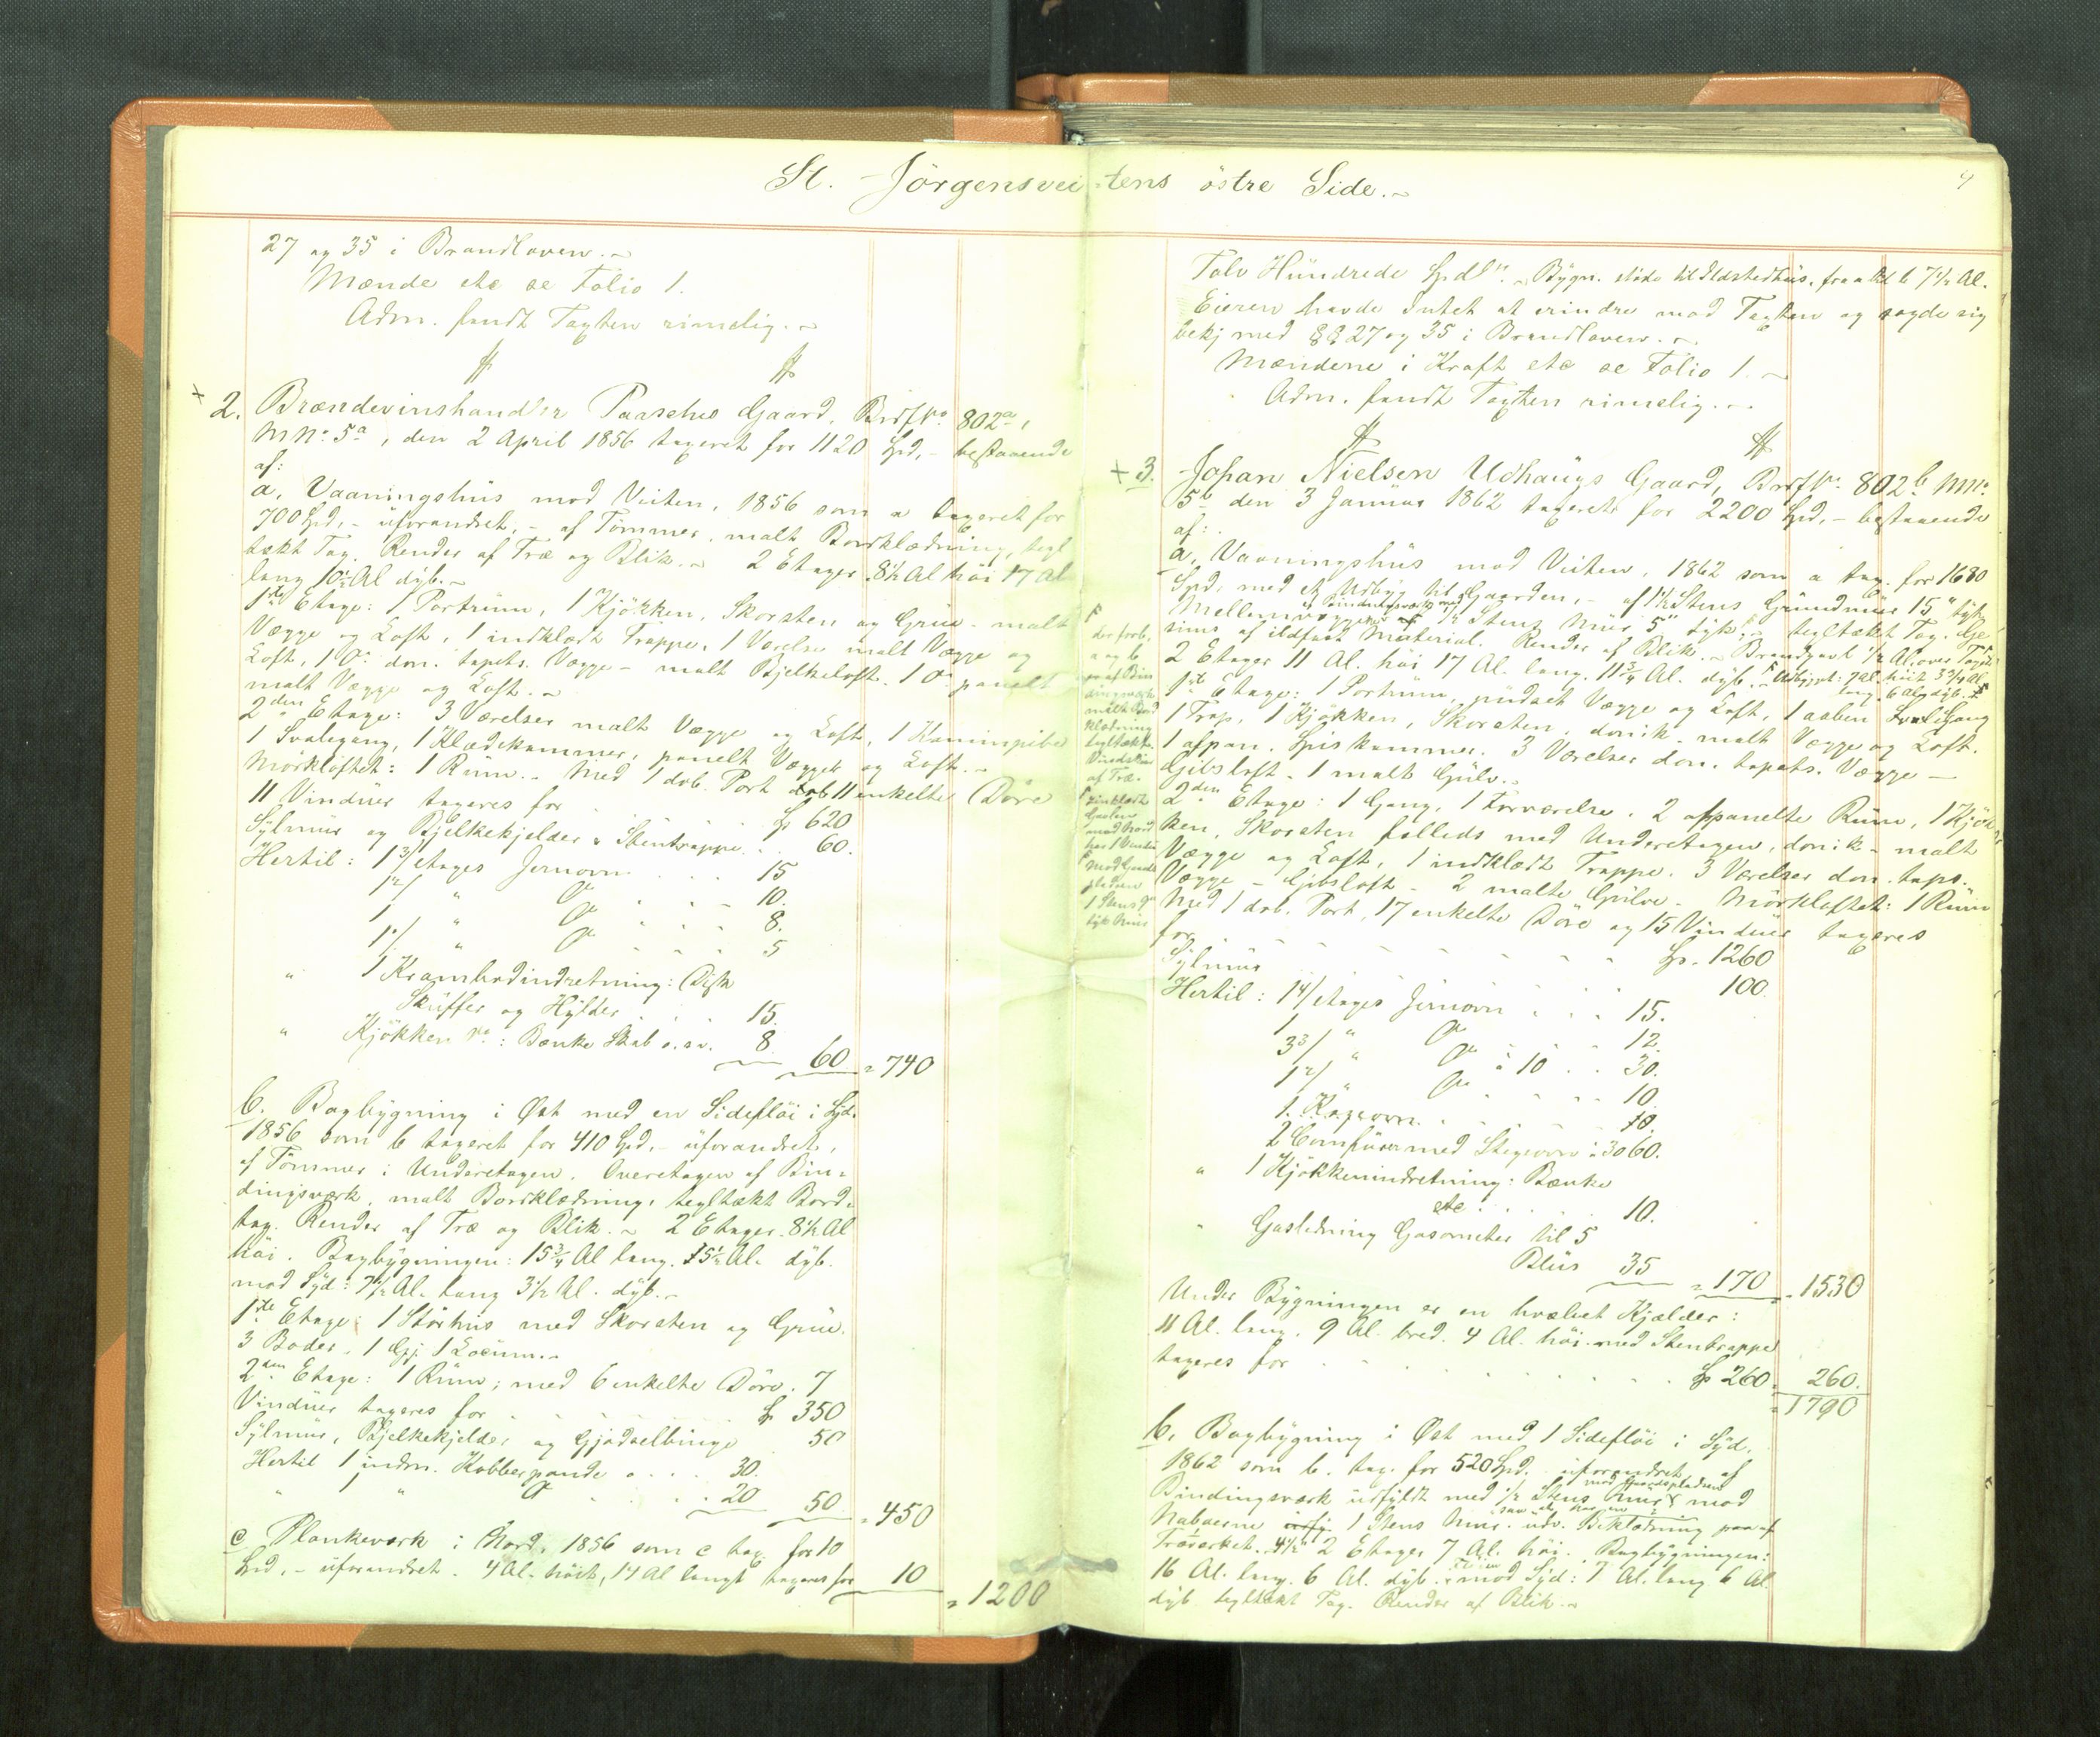 St. Jörgensvei-tens östre Side.
4
27 og 35 i Brandloven.
Mænde etc se Folio 1.
Adm. fandt Taxten rimelig.
+ 2. Brændevinshandler Paasches Gaard, Brdf No 802a,
M No 5a, den 2 April 1856 taxeret for 1120 Spd, - bestaaende
af:
a, Vaaningshus mod Veiten, 1856 som a taxeret for
700 Spd, - uforandret, - af Tömmer, malt Bordklædning, tegl
tækt Tag. Render af Træ og Blik. 2 Etager 8½ Al höi 17 Al
lang 10½ Al dyb.
1ste Etage: 1 Portrum, 1 Kjökken, Skorsten og Grue - malt
Vægge og Loft, 1 indklædt Trappe, 1 Værelse malt Vægge og
Loft, 1 Do don. tapets. Vægge - malt Bjelkeloft. 1 Do panelt
malt Vægge og Loft.
2den Etage: 3 Værelser malt Vægge og Loft, 1 Kaminpibe
1 Svalegang, 1 Klædekammer, panelt Vægge og Loft.
Mörkloftet: 1 Rum. Med 1 dob. Port 11 enkelte Döre
11 Vinduer taxeres for Sp 620
Sylmur og Bjelkekjelder, Stentrappe 60.
Hertil: 1 3/ Etages Jernovn 15
1 2/ " Do 10.
1 " Do 8.
1 1/ " Do 5
" 1 Krambodindretning: Disk
Skuffer og Hylder 15.
" Kjökken Do: Bænke Skab o.s.v. 8. 60 = 740
b. Bagbygning i Öst med en Sideflöi i Syd.
1856 som b taxeret for 410 Spd, - uforandret,
af Tömmer i Underetagen. Overetagen af Bin-
dingsværk, malt Bordklædning, tegltækt Bord-
tag. Render af Træ og Blik. 2 Etager. 8½ Al
höi. Bagbygningen: 15¾ Al lang. 5½ Al. dyb.
mod Syd: 7½ Al. lang 3½ Al. dyb.
1ste Etage: 1 Störhus med Skorsten og Grue.
3 Boder. 1 Gj. 1 Locum.
2den Etage: 1 Rum; med 6 enkelte Döre. 7
Vinduer taxeres for Sp 350
Sylmur, Bjelkekjelder og Gjödselbinge 50
Hertil 1 indm. Kobberpande 30.
" " Do 20 50 = 450
c Plankeværk i Nord, 1856 som c tax. for 10
Spd, - uforandret. 4 Al. höit, 14 Al langt taxeres for 10
= 1200
Tolv Hundrede Spdlr. Bygn. stöde til Ildstedhus. fra a til b 7½ Al.
Eieren havde Intet at erindre mod Taxten og sagde sig
bekj med §§ 27 og 35 i Brandloven.
Mændene i Kraft etc se Folio 1.
Adm. fandt Taxten rimelig.
+ 3. Johan Nielsen Udhaugs Gaard, Brdf No 802b M No
5b den 3 Januar 1862 taxeret for 2200 Spd, - bestaaende
af:
a, Vaaningshus mod Veiten, 1862 som a tax. for 1680
Spd, med et Udbyg til Gaarden, - af 1½ Stens Grundmur 15" tyk,
Mellemvægge af Bindingsværk med ½ Stens Mur 5" tyk; tegltækt Tag. Ge
sims af ildfast Material. Render af Blik. Brandgavl ½ Al. over Taget
2 Etager 11 Al. höi 17 Al. lang. 11¾ Al. dyb. Udbygget: 7 Al. höit 3¾ Al.
lang. 6 Al. dyb.
1ste Etage: 1 Portrum, pudset Vægge og Loft, 1 aaben Gang
1 Trap, 1 Kjökken, Skorsten, donik. malt Vægge og Loft.
1 afpan. Spiskammer. 3 Værelser don. tapets. Vægge -
Gibsloft. 1 malt Gulv.
2den Etage: 1 Gang, 1 Forværelse, 2 afpanelte Rum, 1 Kjök
ken, Skorsten fælleds med Underetagen, donik - malt
Vægge og Loft, 1 indklædt Trappe. 3 Værelser don. tape.
Vægge - Gibsloft - 2 malte Gulve. Mörkloftet: 1 Rum
Med 1 dob. Port, 17 enkelte Döre og 15 Vinduer taxeres
for Sp. 1260
Sylmur 100.
Hertil: 1 4/ Etages Jernovn 15.
1 " Do 12.
3 3/ " Do à 10 30.
1 2/ " Do 10.
1 Kageovn 10.
2 Comfurer med Stegeovn à 30 60.
" 1 Kjökkenindretning: Bænke
etc 10.
" Gasledning Gasometer til 5
Blus 35 = 170 = 1530
Under Bygningen er en hvælvet Kjælder:
11 Al. lang. 9 Al. bred. 4 Al. höi. med Stentrappe
taxeres for Sp 260 260.
= 1790
b, Bagbygning i Öst med 1 Sideflöi i Syd.
1862 som b. tax. for 520 Spd. uforandret af
Bindingsværk udfyldt med ½ Stens Mur mod Gaardspladsen mod
Naboerne 1 Stens Mur. udv. Beklædning paa af
Træværket. 4½" 2 Etager 7 Al. höi. Bagbygningen:
16 Al. lang. 6 Al. dyb. Flöien mod Syd: 7 Al. lang 6 Al.
dyb tegltækt Tag. Render af Blik.
der forb.
a og b
er af Bin
dingsværk
malt Bord
klædning
tegltækt.
Vindskier
af Træ.
indklædt
Gavlen
mod Nord
har 1 Vindu
Mod Gaards
pladsen
1 Stens
tyk Mur